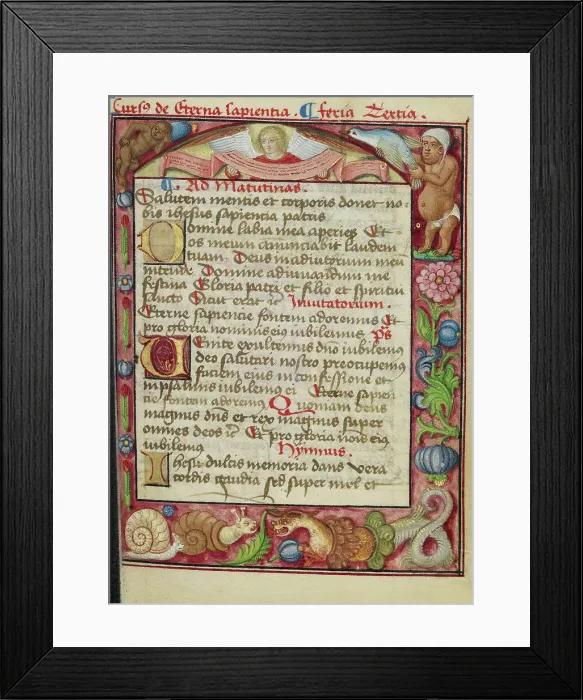 Cursꝯ de Eterna sapientia. ¶ feria Tertia.
¶. Ad Matutinas.
Salutem mentis et corporis donet no-
bis ihesus sapientia patris
Domine labia mea aperies Et
os meum annunciabit laudem
tuam Deus in adiutorium meū
intende Domine ad iuuandum me
festina Gloria patri et filio et spiritui
sancto Sicut erat ⁊c Inuitatorium.
Eterne sapiencie fontem adoremus Et
pro gloria nominis eiꝯ iubilemus ps
Uenite exultemus dn̄o iubilemꝯ
deo salutari nostro preocupemꝯ
faciem eius in confessione et
in psalmis iubilemꝯ ei Eterne sapien
cie fontem adoremꝯ Quoniam deus
magnus dn̄s et rex magnus super
omnes deos ⁊c Et pro gloria nois eiꝯ
iubilemꝯ Hymnus.
Ihesu dulcis memoria dans vera
cordis gaudia sed super mel et